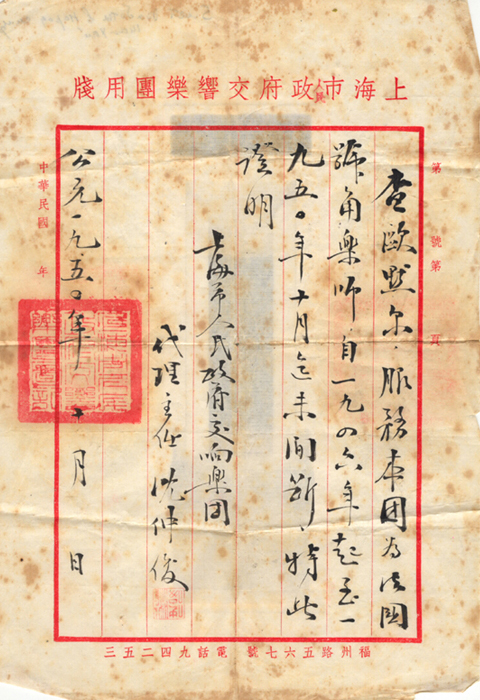 上海市人民政府交響樂團用牋
第 號第 頁
查歐默尔·服務本团为法国
號角樂师自一九四六年起至一
九五〇年十月迄未间斷·特此
證明
上海市人民政府交响樂团
代理主任 沈仲俊
公元一九五〇年十一月 日
中華民國 年
福州路五六七號 電話九四二五三